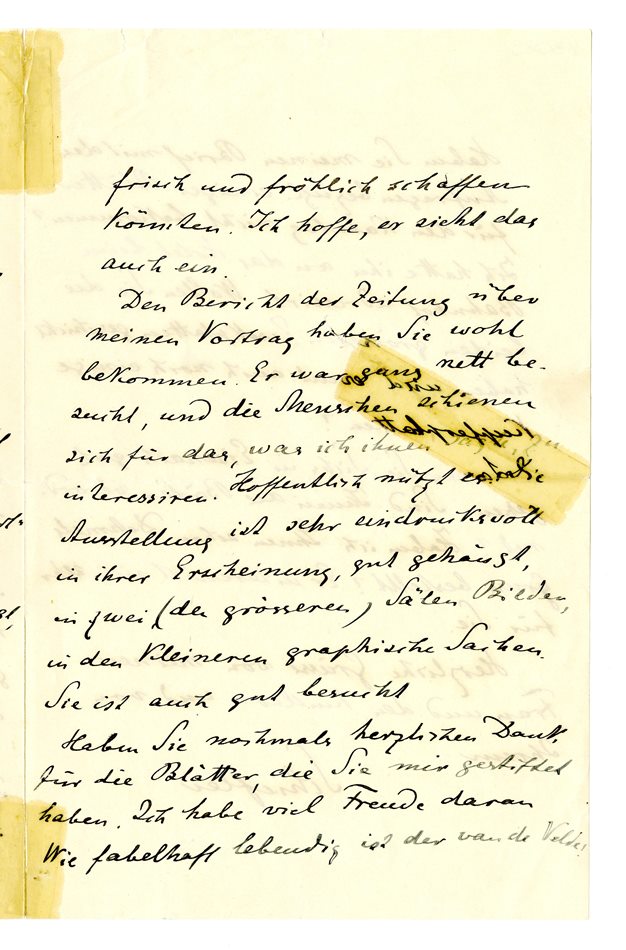 frisch und fröhlich schaffen
könnten. Ich hoffe, er sieht das
auch ein.
Den Bericht der Zeitung über
meinen Vortrag haben Sie wohl
bekommen. Er war ganz nett be-
sucht, und die Menschen schienen
sich für das, was ich ihnen zu
interessiren. Hoffentlich nützt es. Die
Ausstellung ist sehr eindrucksvoll
in ihrer Erscheinung, gut gehängt,
in zwei (den grösseren) Sälen Bilder,
in den Kleineren graphische Sachen.
Sie ist auch gut besucht
Haben Sie nochmals herzlichen Dank
für die Blätter, die Sie mir gestiftet
haben. Ich habe viel Freude daran
Wie fabelhaft lebendig ist der van de Velde!